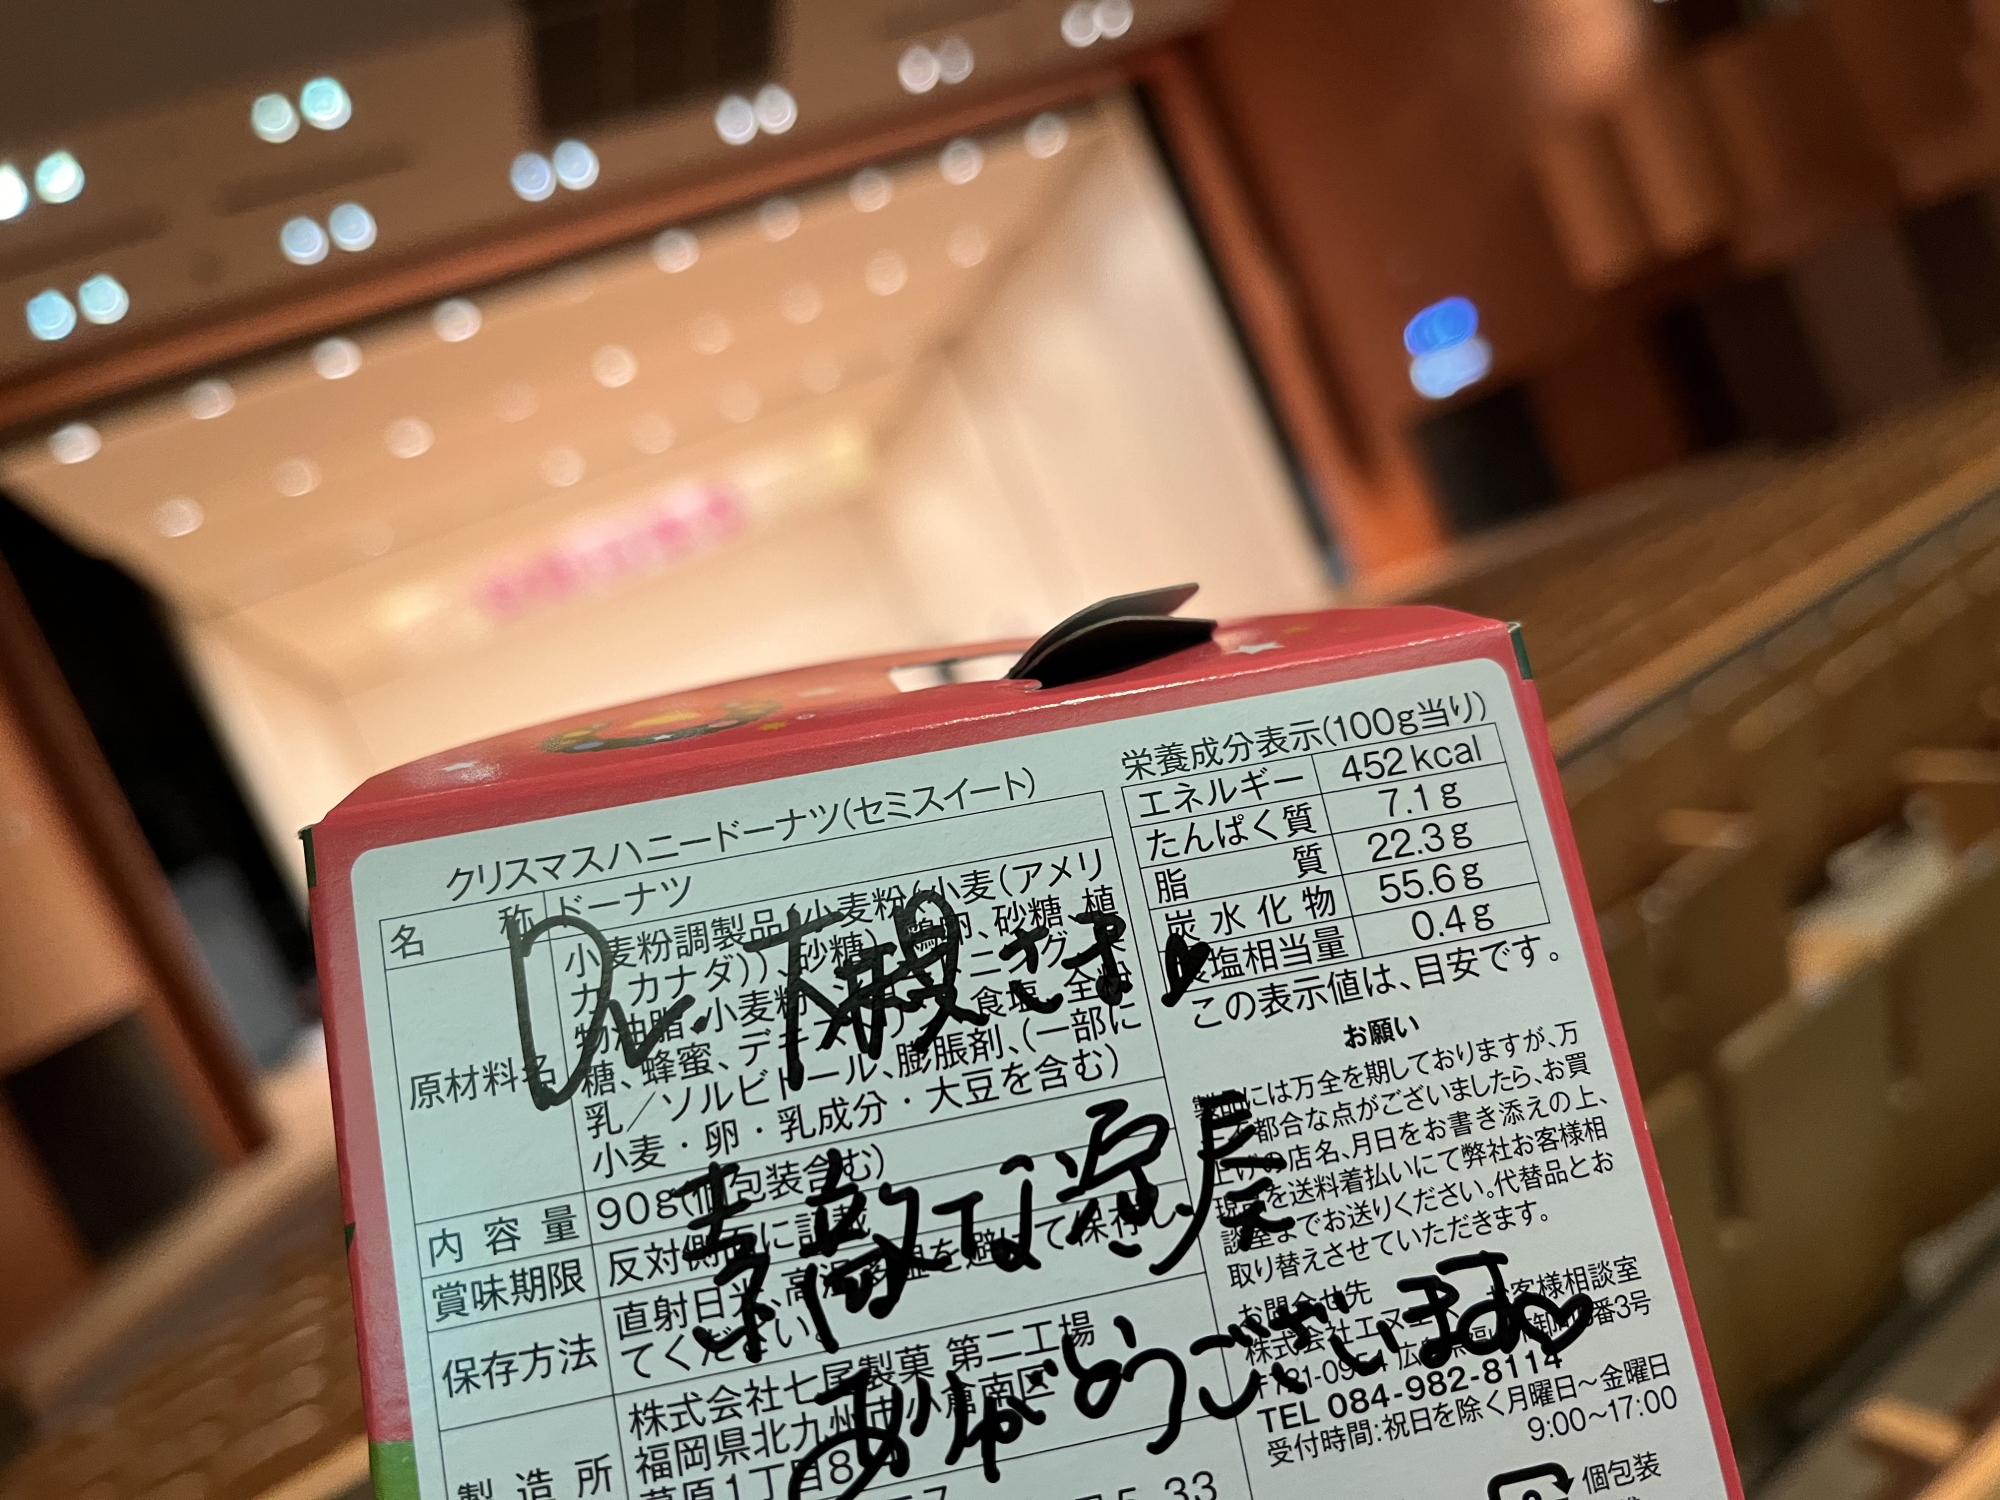 クリスマスハニードーナツ(セミスイート)
名 称 ドーナツ
原材料名
小麦粉調製品(小麦粉(小麦(アメリ
カ、カナダ))、砂糖)、鶏卵、砂糖、植
物油脂、小麦粉、食塩、全粉
糖、蜂蜜、デキス
乳／ソルビトール、膨脹剤、(一部に
小麦・卵・乳成分・大豆を含む)
内 容 量 90g(個包装含む)
賞味期限 反対側面に記載
保存方法 直射日光、高温多湿を避けて保存し
てください。
製 造 所 株式会社七尾製菓 第二工場
福岡県北九州市小倉南区
葛原1丁目8
栄養成分表示(100g当り)
エネルギー 452kcal
たんぱく質 7.1g
脂 質 22.3g
炭水化物 55.6g
食塩相当量 0.4g
この表示値は、目安です。
お願い
製品には万全を期しておりますが、万
一不都合な点がございましたら、お買
上げの店名、月日をお書き添えの上、
現品を送料着払いにて弊社お客様相
談室までお送りください。代替品とお
取り替えさせていただきます。
お問合せ先
株式会社エヌ お客様相談室
TEL 084-982-8114
受付時間:祝日を除く月曜日～金曜日
9:00～17:00
個包装
Dr. さま
素敵な
ありがとうございます♡